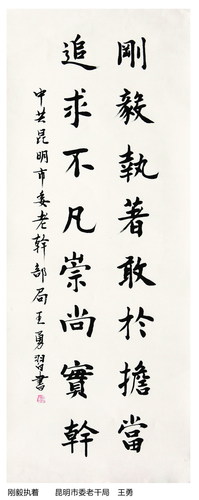 剛毅執著敢於擔當
追求不凡崇尚實幹
中共昆明市委老幹部局王勇習書
刚毅执着　昆明市委老干局　王勇